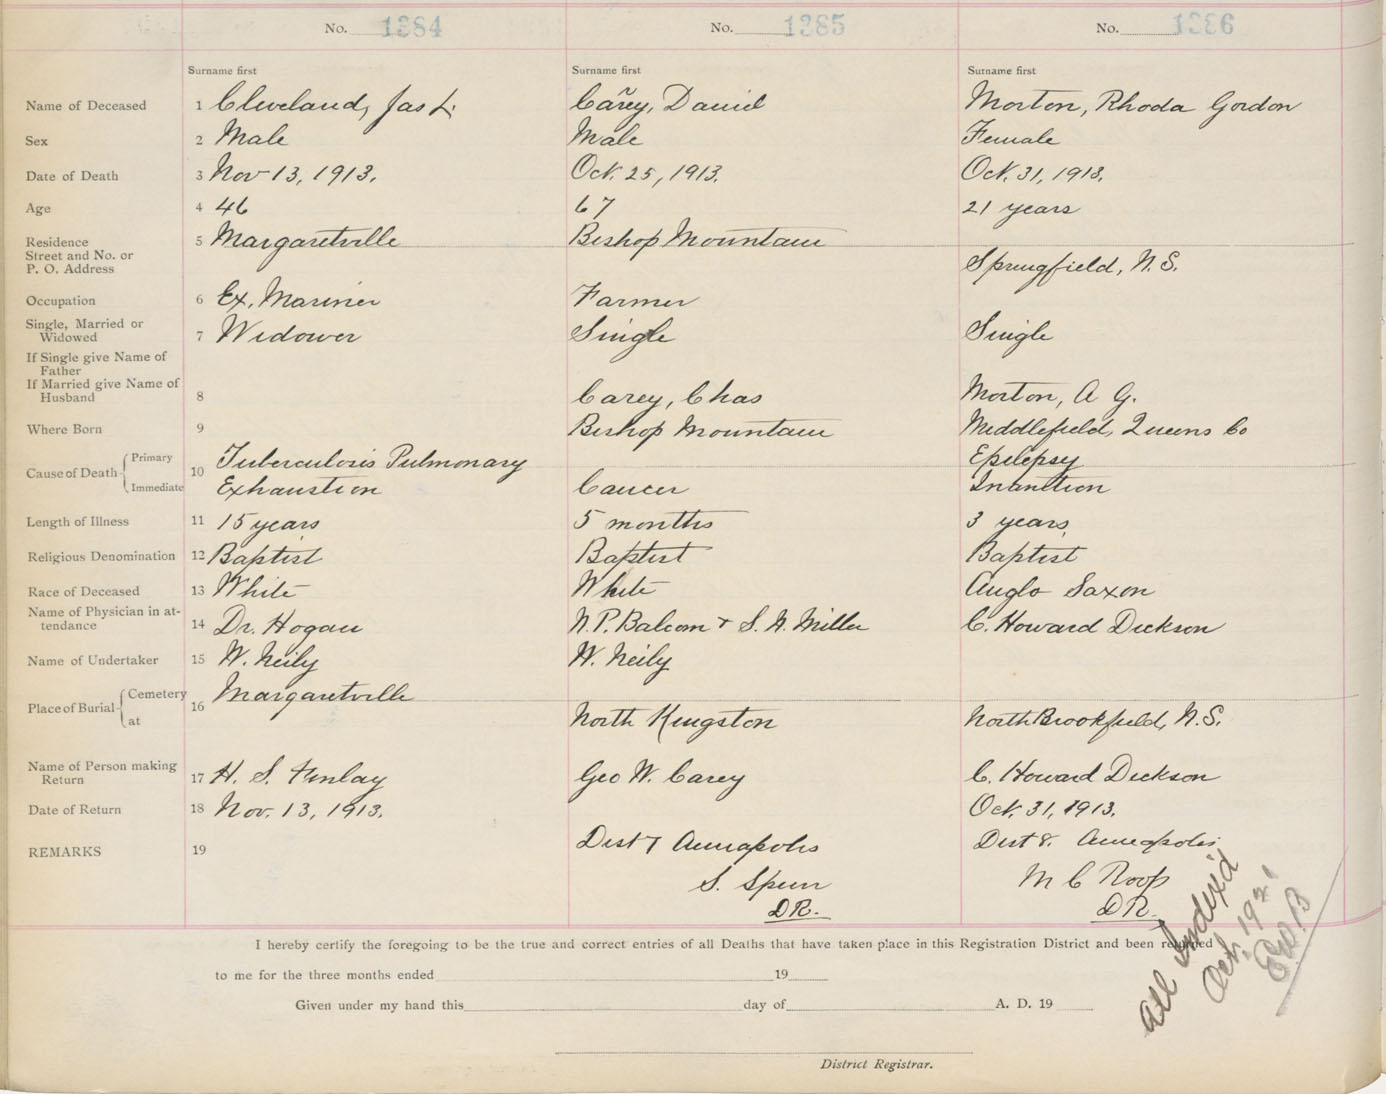 No. 1384 No. 1385 No. 1386
Surname first Surname first Surname first
Name of Deceased 1 Cleveland, Jas L. Carey, Daniel Morton, Rhoda Gordon
Sex 2 Male Male Female
Date of Death 3 Nov 13, 1913. Oct. 25, 1913. Oct. 31, 1913.
Age 4 46 67 21 years
Residence 5 Margaretville Bishop Mountain
Street and No. or
P. O. Address Springfield, N.S.
Occupation 6 Ex. Mariner Farmer
Single, Married or
Widowed 7 Widower Single Single
If Single give Name of
Father
If Married give Name of
Husband 8 Carey, Chas Morton, A G.
Where Born 9 Bishop Mountain Middlefield, Queens Co
Cause of Death Primary 10 Tuberculosis Pulmonary Epilepsy
Immediate Exhaustion Cancer Inanition
Length of Illness 11 15 years 5 months 3 years
Religious Denomination 12 Baptist Baptist Baptist
Race of Deceased 13 White White Anglo Saxon
Name of Physician in at-
tendance 14 Dr. Hogan N. P. Balcom + S. N. Miller C. Howard Dickson
Name of Undertaker 15 W. Neily W. Neily
Place of Burial Cemetery 16 Margaretville
at North Kingston North Brookfield, N.S.
Name of Person making
Return 17 H. S. Finlay Geo W. Carey C. Howard Dickson
Date of Return 18 Nov. 13, 1913. Oct. 31, 1913.
REMARKS 19 Dist 7 Annapolis Dist 8. Annapolis
S. Spurr M C Roop
DR. DR.
I hereby certify the foregoing to be the true and correct entries of all Deaths that have taken place in this Registration District and been returned
to me for the three months ended 19
Given under my hand this day of A. D. 19
District Registrar.
All Index'd
Oct. 1921